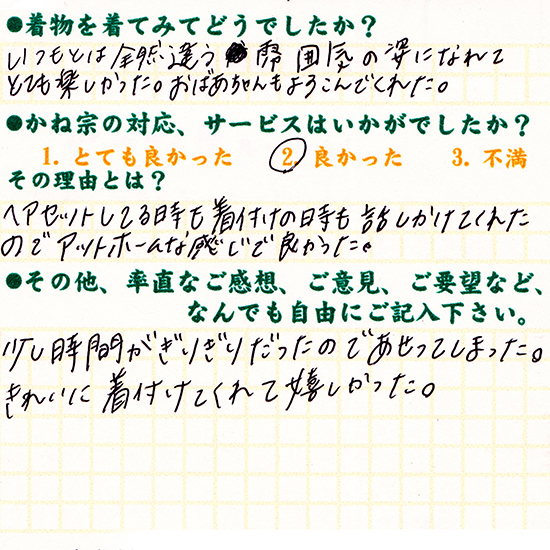 ●着物を着てみてどうでしたか？
いつもとは全然違う雰囲気の姿になれて
とても楽しかった。おばあちゃんもよろこんでくれた。
●かね宗の対応、サービスはいかがでしたか？
1. とても良かった 2. 良かった 3. 不満
その理由とは？
ヘアセットしてる時も着付けの時も話しかけてくれた
のでアットホームな感じで良かった。
●その他、率直なご感想、ご意見、ご要望など、
なんでも自由にご記入下さい。
少し時間がぎりぎりだったのであせってしまった。
きれいに着付けてくれて嬉しかった。